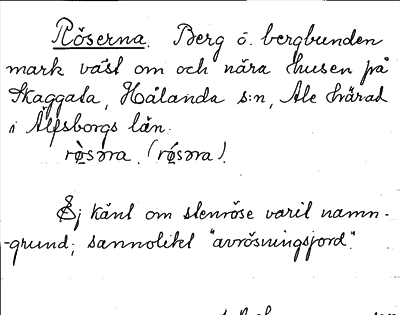 Röserna. Berg o. bergbunden
mark väst om och nära husen på
Skaggata, Hålanda s:n, Ale härad
i Älfsborgs län.
rö̀sərna. (rǿsərna).
Ej känt om stenröse varit namn-
-grund; sannolikt "avrösningsjord".